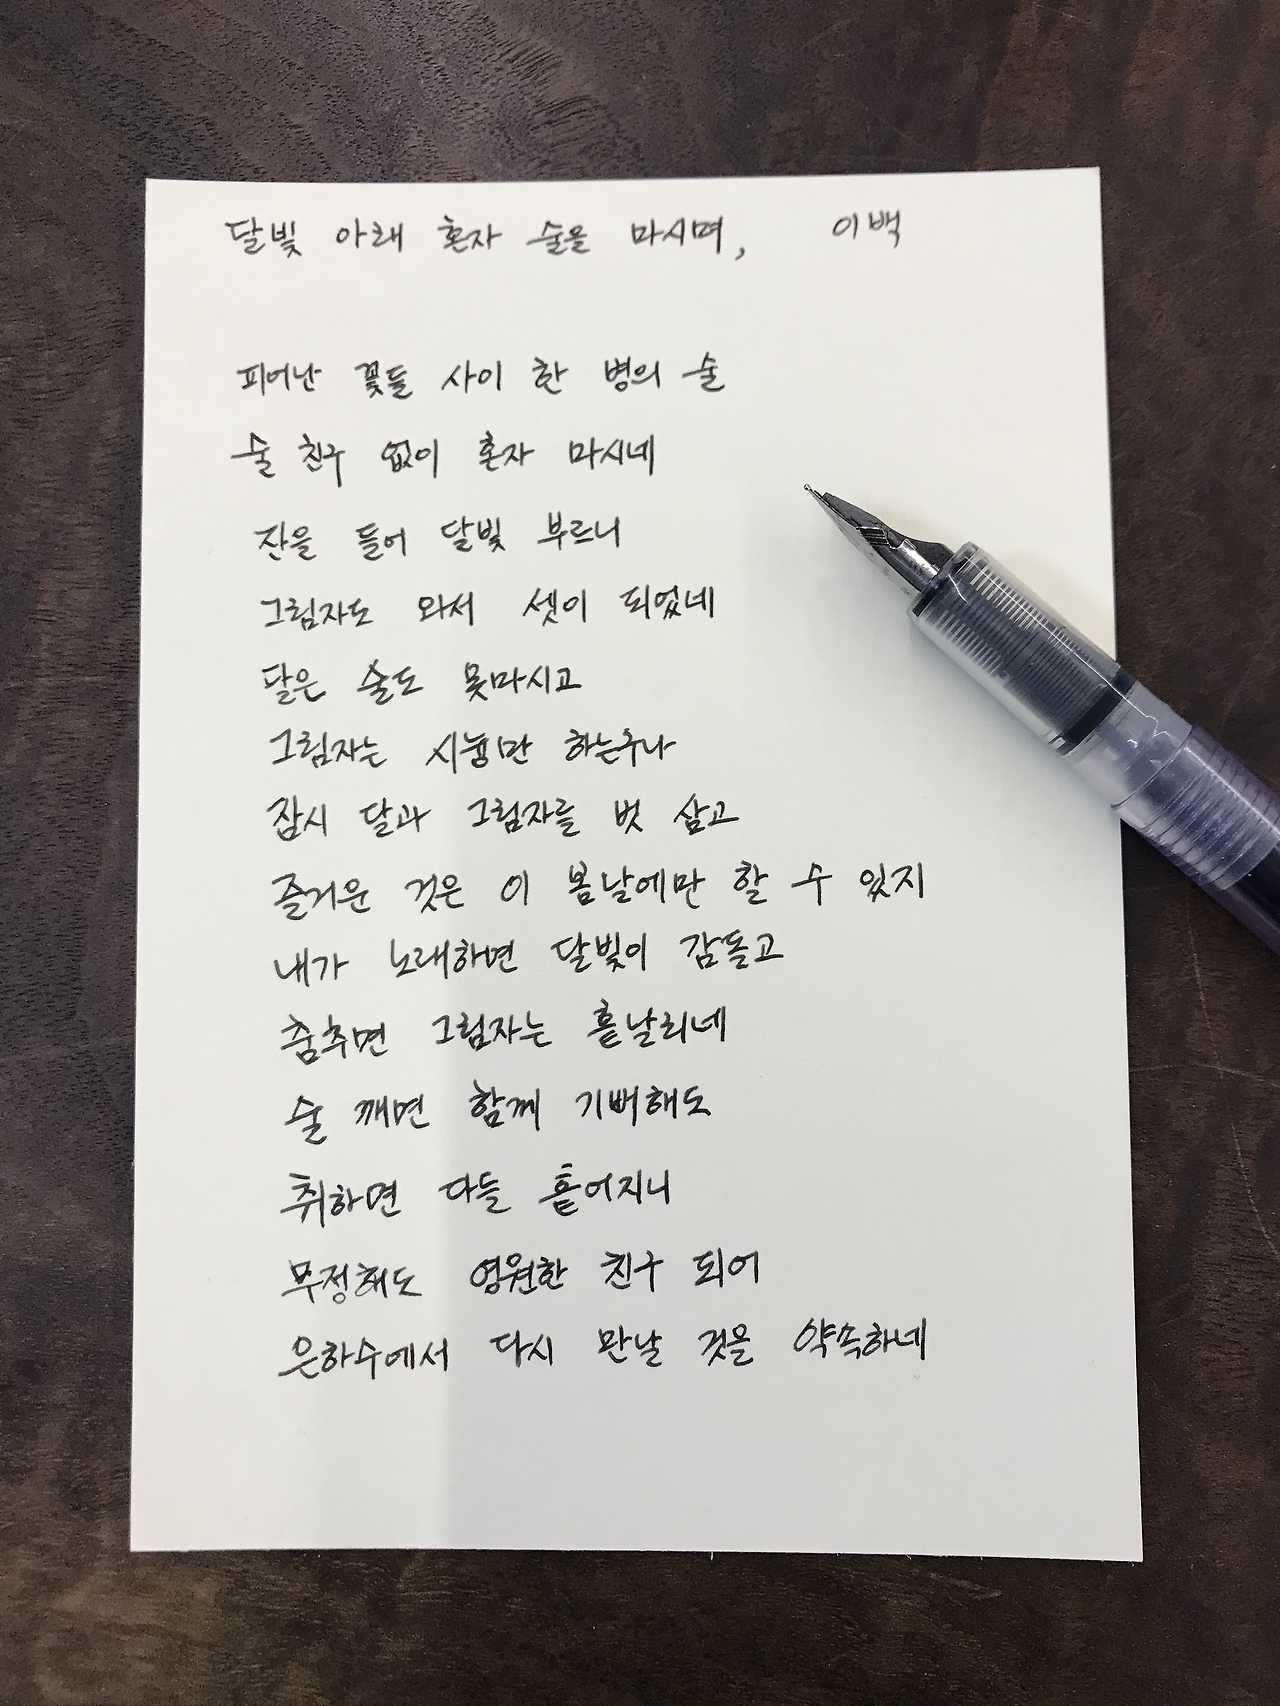 달빛 아래 혼자 술을 마시며, 이백
피어난 꽃들 사이 한 병의 술
술 친구 없이 혼자 마시네
잔을 들어 달빛 부르니
그림자도 와서 셋이 되었네
달은 술도 못마시고
그림자는 시늉만 하는구나
잠시 달과 그림자를 벗 삼고
즐거운 것은 이 봄날에만 할 수 있지
내가 노래하면 달빛이 감돌고
춤추면 그림자는 흩날리네
술 깨면 함께 기뻐해도
취하면 다들 흩어지니
무정해도 영원한 친구 되어
은하수에서 다시 만날 것을 약속하네